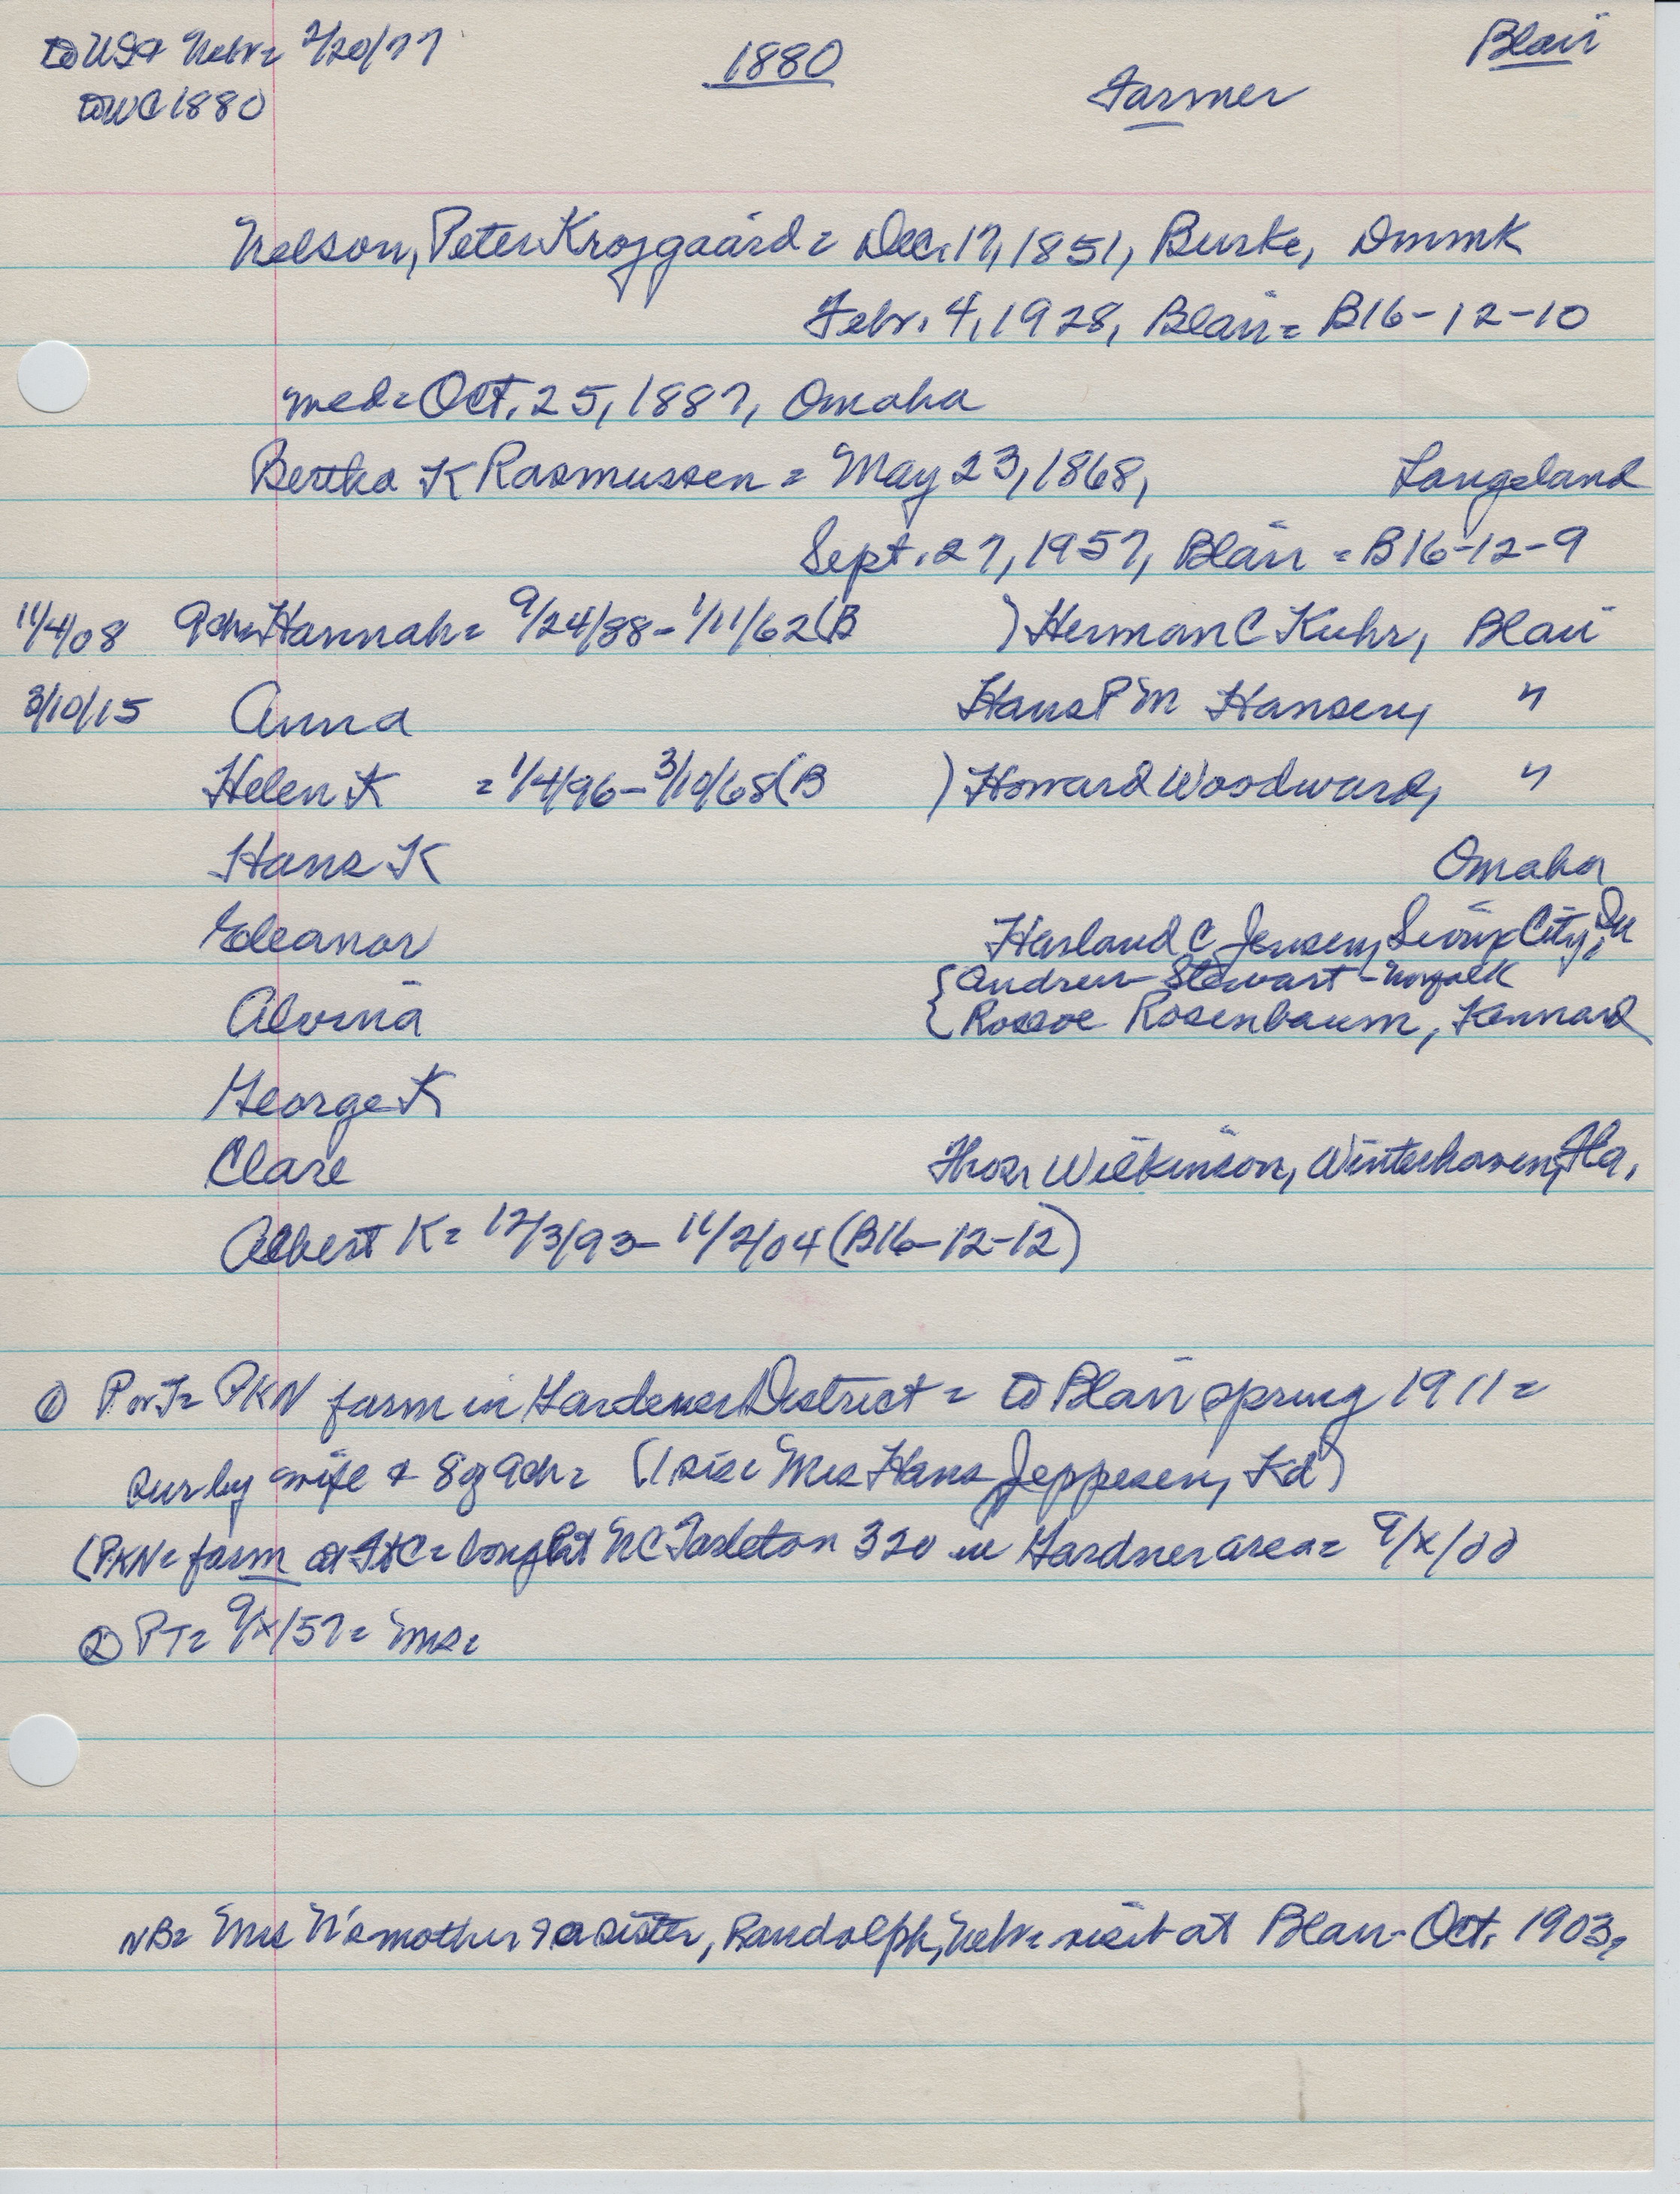 to USA Nebr= 2/20/77
to WC 1880
1880
Farmer
Blair
Nelson, Peter Krojgaard= Dec. 17, 1851, Burke, Dmmk
Febr. 4, 1928, Blair= B16-12-10
med= Oct. 25, 1887, Omaha
Bertha K Rasmussen= May 23, 1868, Langeland
Sept. 27, 1957, Blair = B16-12-9
11/4/08 9ch= Hannah= 9/24/88- 1/11/62 (B ) Herman C Kuhr, Blair
3/10/15 Anna Hans P M Hansen, "
Helen K = 1/4/96- 3/10/68 (B ) Howard Woodward, "
Hans K Omaha
Eleanor Harland C Jensen, Sioux City, Ia
Alvina {Andrew Stewart - Norfolk
{Roscoe Rosenbaum, Kennard
George K
Clare Thos. Wilkinson, Winterhaven, Fla.
Albert K= 12/3/93- 11/2/04 (B16-12-12)
① P = PKN farm in Gardener District= to Blair spring 1911=
sur by wife & 8 of 9ch= (1 sis= Mrs Hans Jeppesen, Kd)
(PKN= farm at FtC= bought NC Tarleton 320 in Gardner area= 9/x/00
② PT= 9/x/57= Mrs=
NB= Mrs N's mother & a sister, Randolph, Nebr= visit at Blair- Oct. 1903,